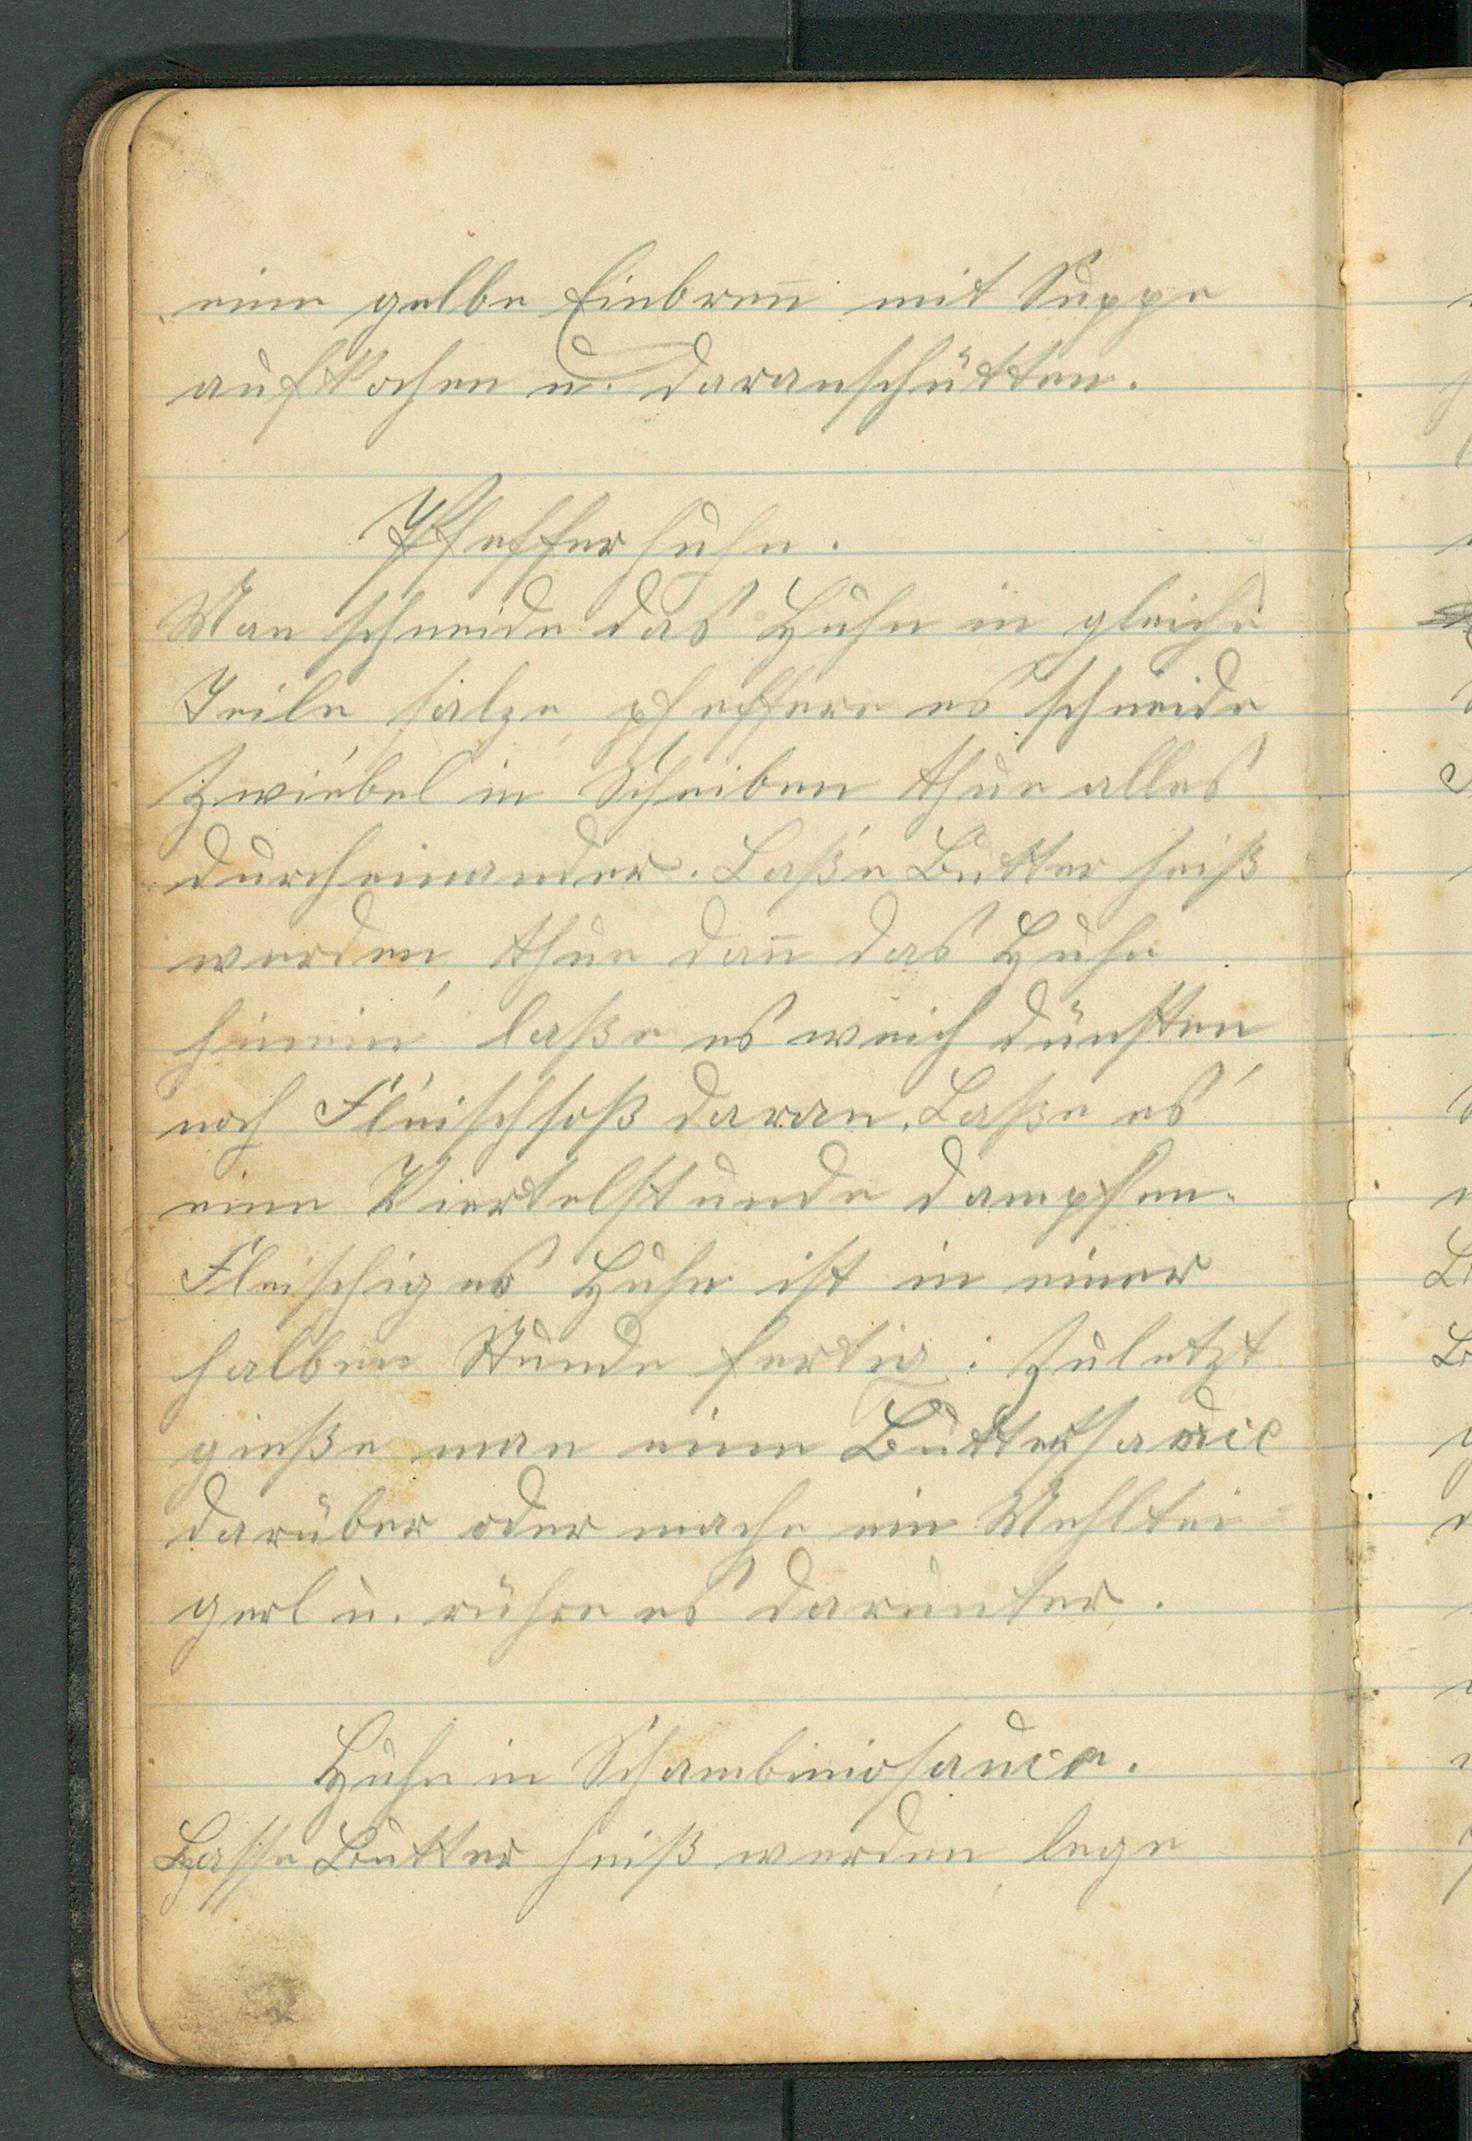 eine gelbe Einbreñ mit Suppe
aufkochen u. daranschütten.
Pfefferhuhn.
Man schneide das Huhn in gleiche
Teile salze, pfeffere es schneide
Zwiebel in Scheiben thue alles
durcheinander. Laße Butter heiß
werden, thue dañ das Huhn
hinein, laße es weich dünsten,
noch Fleischsoß daran. Laße es
eine Viertelstunde dampfen.
Fleischiges Huhn ist in einer
halben Stunde fertig: Zuletzt
gieße man eine Buttersauce
darüber oder mache ein Mehltei-
gerl u. rühre es darunter.
Huhn in Schambiniosauce.
Lasse Butter heiß werden, lege